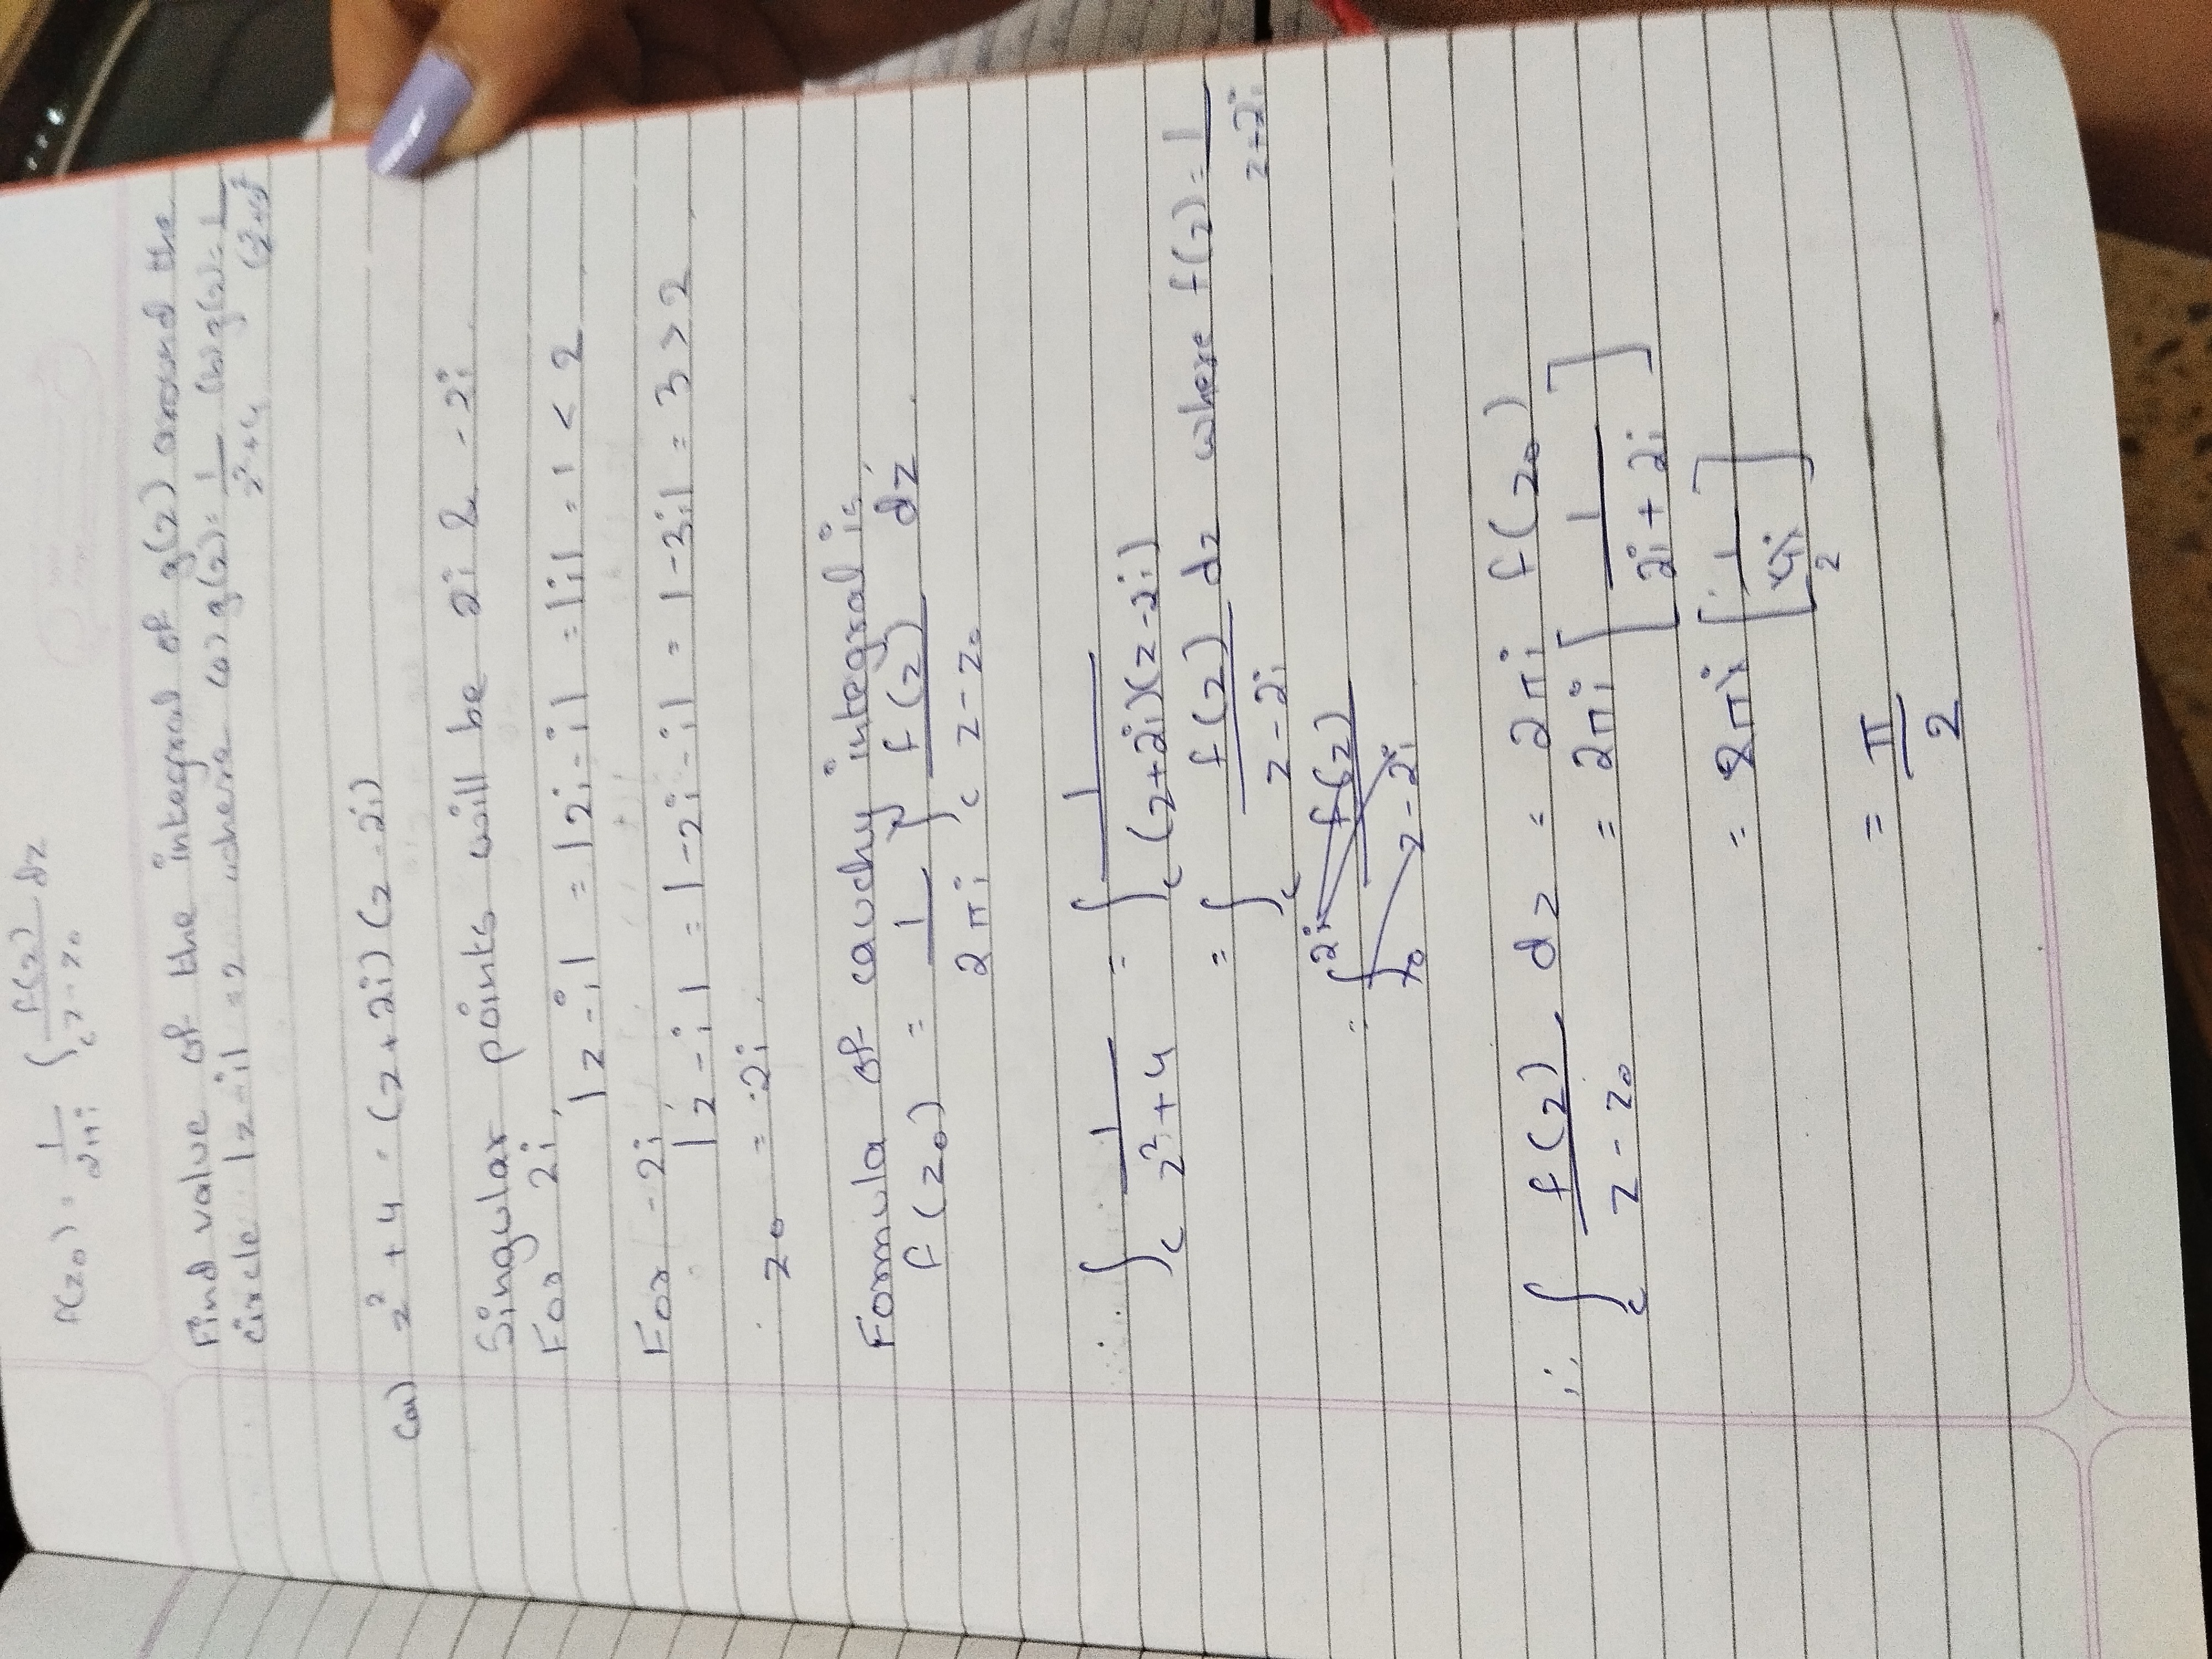 f(z₀) = 1/2πi ∫c f(z)/z-z₀ dz
Find value of the integral of g(z) around the
circle |z-i| = 2 where (a) g(z) = 1/z²+4 (b) g(z) = 1/(z²+4)²
(a) z² + 4 = (z+2i)(z-2i)
Singular points will be 2i & -2i
For 2i,
|z-i| = |2i-i| = |i| = 1 < 2
For -2i
|z-i| = |-2i-i| = |-3i| = 3 > 2
z₀ = 2i
Formula of cauchy integral is
f(z₀) = 1/2πi ∫c f(z)/z-z₀ dz
∫c 1/z²+4 = ∫c 1/(z+2i)(z-2i)
= ∫c f(z)/z-2i dz where f(z) = 1/z+2i
= ∫ f(z)/z-2i
∴ ∫c f(z)/z-z₀ dz = 2πi f(z₀)
= 2πi [1/2i+2i]
= 2πi [1/4i] 2
= π/2